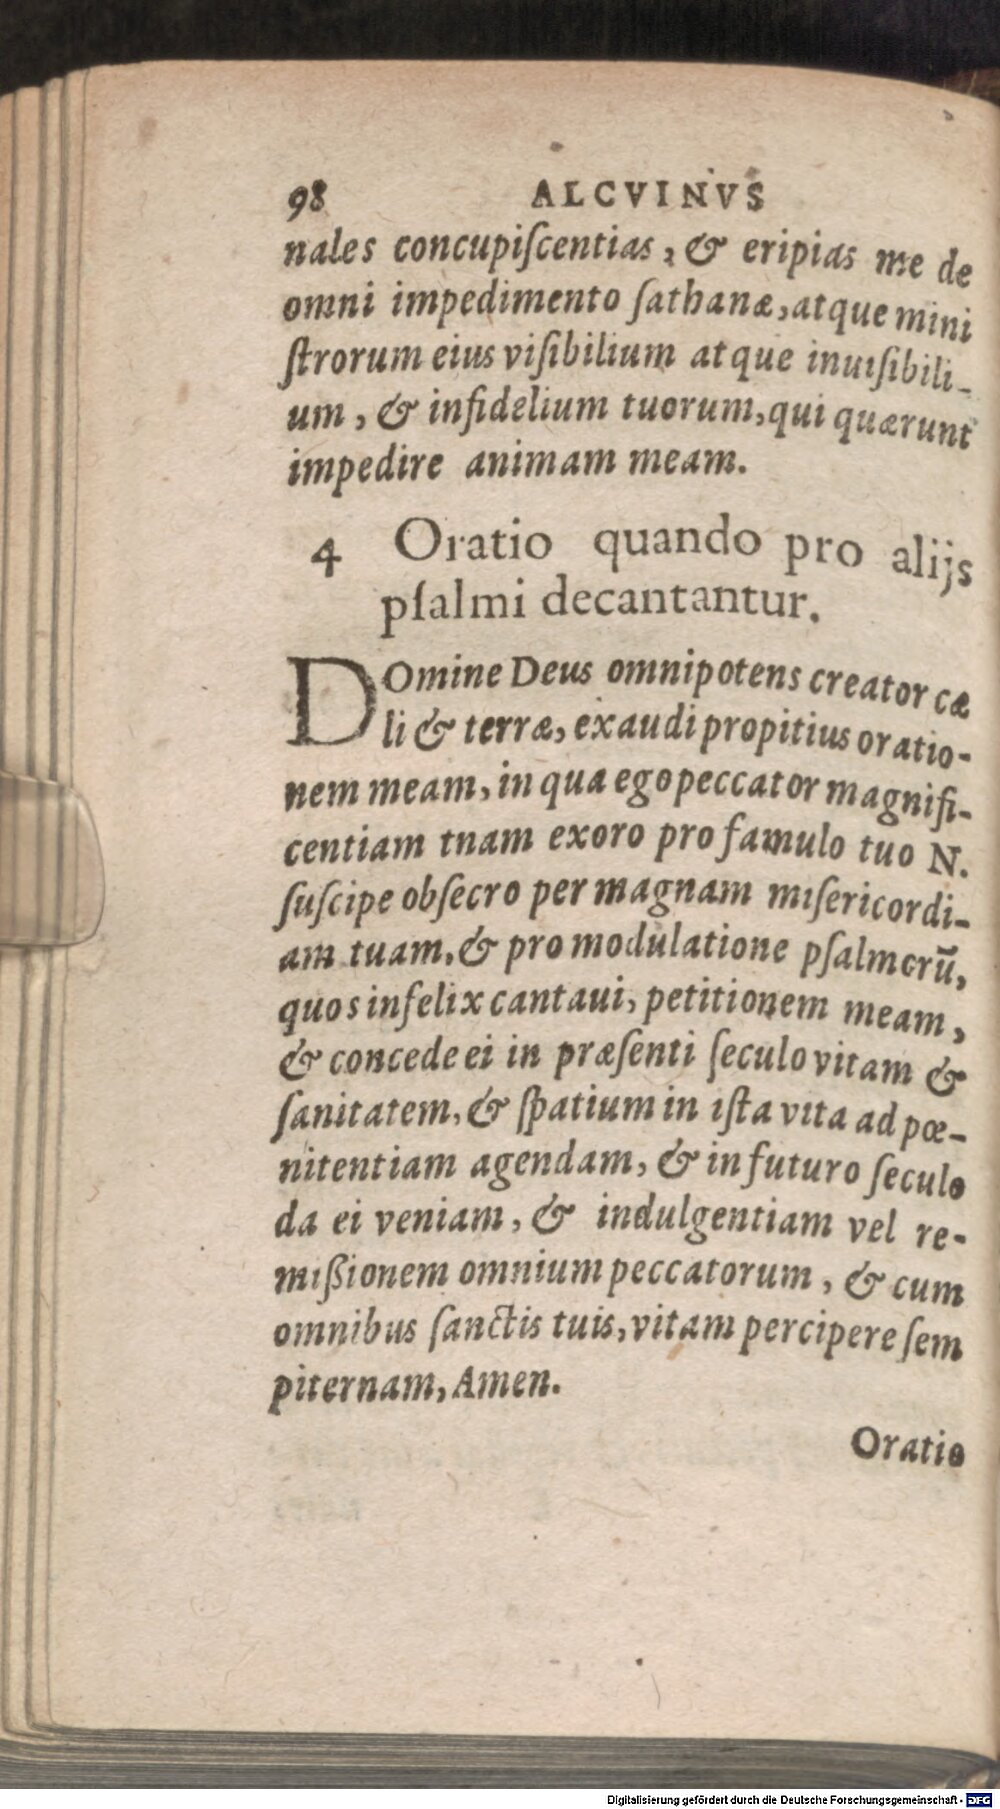 98 ALCVINVS
nales concupiſcentias, & eripias me de
omni impedimento ſathanæ, atque mini
ſtrorum eius viſibilium atque inuiſibili-
um, & infidelium tuorum, qui quærunt
impedire animam meam.
4 Oratio quando pro alijs
pſalmi decantantur.
DOmine Deus omnipotens creator cæ
li & terræ, exaudi propitius oratio-
nem meam, in qua ego peccator magnifi-
centiam tnam exoro pro famulo tuo N.
ſuſcipe obſecro per magnam miſericordi-
am tuam, & pro modulatione pſalmorū,
quos infelix cantaui, petitionem meam,
& concede ei in præſenti ſeculo vitam &
ſanitatem, & ſpatium in iſta vita ad pœ-
nitentiam agendam, & in futuro ſeculo
da ei veniam, & indulgentiam vel re-
mißionem omnium peccatorum, & cum
omnibus ſanctis tuis, vitam percipere ſem
piternam, Amen.
Oratio
Digitalisierung gefördert durch die Deutsche Forschungsgemeinschaft - DFG